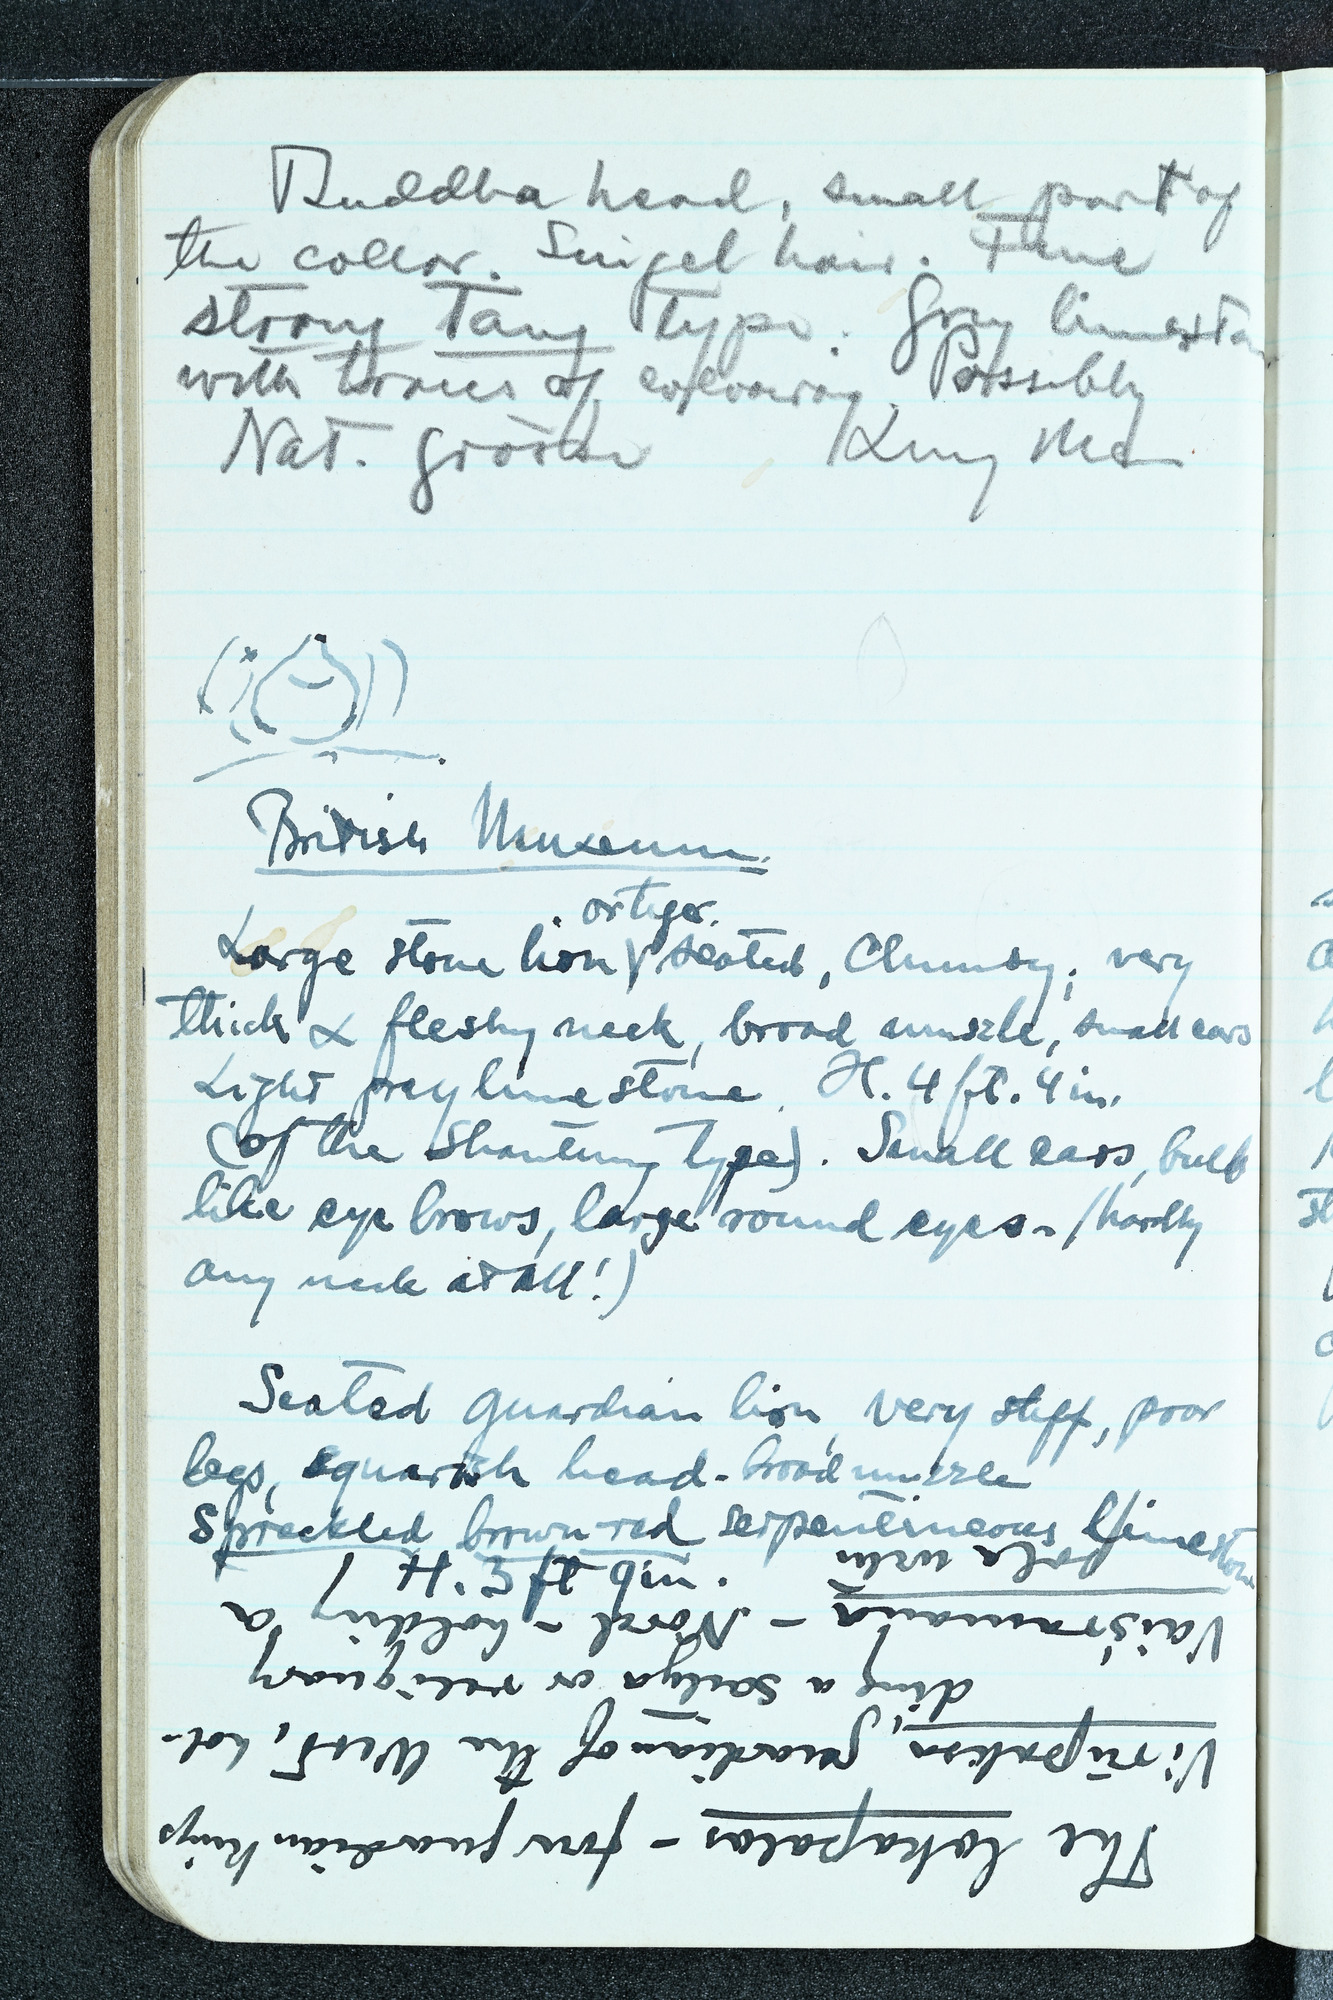 Buddha head, small part of
the collar. Singel hair. Fine
strong Tang type. Grey limeston
with traces of coloring. Possibly
Nat. grösse King Mo
British Museum.
or tiger.
Large stone lion seated, Clumsy, very
thick & fleshy neck, broad muzzle, small ears
Light grey limestone. H. 4 ft. 4 in.
(of the Shantung type). Small ears, bulb
like eye brows, large round eyes - (hardly
any neck at all!)
Seated guardian lion, very stiff, poor
legs, squarish head - broad muzzle
Spreckled brown-red serpentineous limestone
H. 3 ft 9 in.
The Lokapalas - four guardian kings
Virūpaksa, guardian of the West, hol-
ding a stūpa or reliquary
Vaiśramana - Nord - holding a